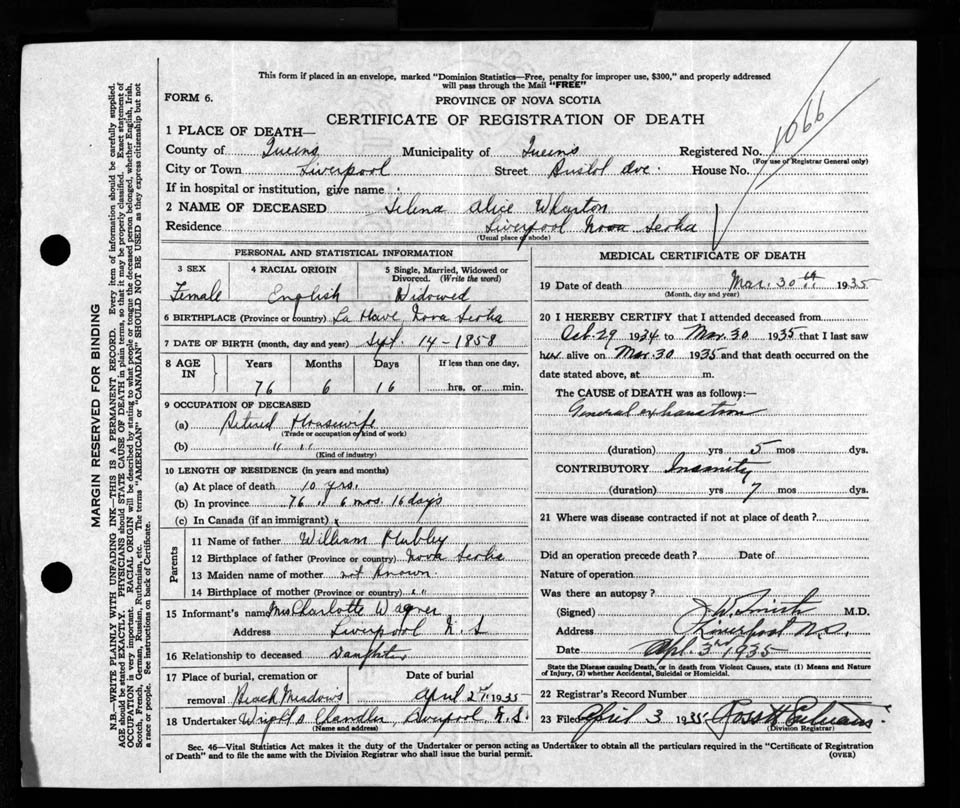 This form if placed in an envelope, marked "Dominion Statistics—Free, penalty for improper use, $300," and properly addressed
will pass through the Mail "FREE"
FORM 6.
PROVINCE OF NOVA SCOTIA
CERTIFICATE OF REGISTRATION OF DEATH
1066
1 PLACE OF DEATH—
County of Queens Municipality of Queens Registered No.
(For use of Registrar General only)
City or Town Liverpool Street Bristol Ave. House No.
If in hospital or institution, give name
2 NAME OF DECEASED Selena Alice Wharton
Residence Liverpool Nova Scotia
(Usual place of abode)
PERSONAL AND STATISTICAL INFORMATION
3 SEX 4 RACIAL ORIGIN 5 Single, Married, Widowed or
Divorced. (Write the word)
Female English Widowed
6 BIRTHPLACE (Province or country) La Have Nova Scotia
7 DATE OF BIRTH (month, day and year) Sept. 14-1858
8 AGE IN Years Months Days If less than one day,
76 6 16 hrs. or min.
9 OCCUPATION OF DECEASED
(a) Retired Housewife
(Trade or occupation or kind of work)
(b) " "
(Kind of industry)
10 LENGTH OF RESIDENCE (in years and months)
(a) At place of death 10 yrs.
(b) In province 76 " 6 mos. 16 days
(c) In Canada (if an immigrant)
Parents
11 Name of father William
12 Birthplace of father (Province or country) Nova Scotia
13 Maiden name of mother not known
14 Birthplace of mother (Province or country) " "
15 Informant's name Mrs Charlotte Wagner
Address Liverpool N.S
16 Relationship to deceased Daughter
17 Place of burial, cremation or Date of burial
removal Beach Meadows April 2nd 1935
18 Undertaker Wright & Chandler, Liverpool N.S.
(Name and address)
MEDICAL CERTIFICATE OF DEATH
19 Date of death Mar. 30th 1935
(Month, day and year)
20 I HEREBY CERTIFY that I attended deceased from
Oct. 29 1934 to Mar. 30 1935 that I last saw
her alive on Mar. 30 1935 and that death occurred on the
date stated above, at m.
The CAUSE of DEATH was as follows:—
General exhaustion
(duration) yrs 5 mos dys.
CONTRIBUTORY Insanity
(duration) yrs 7 mos dys.
21 Where was disease contracted if not at place of death?
Did an operation precede death? Date of
Nature of operation
Was there an autopsy?
(Signed) J W Smith M.D.
Address Liverpool N.S.
Date Apl. 3rd 1935
State the Disease causing Death, or in death from Violent Causes, state (1) Means and Nature
of Injury, (2) whether Accidental, Suicidal or Homicidal.
22 Registrar's Record Number
23 Filed April 3 1935
(Division Registrar)
Sec. 46—Vital Statistics Act makes it the duty of the Undertaker or person acting as Undertaker to obtain all the particulars required in the "Certificate of Registration
of Death" and to file the same with the Division Registrar who shall issue the burial permit.
(OVER)
MARGIN RESERVED FOR BINDING
N.B.—WRITE PLAINLY WITH UNFADING INK—THIS IS A PERMANENT RECORD. Every item of information should be carefully supplied.
AGE should be stated EXACTLY. PHYSICIANS should STATE CAUSE OF DEATH in plain terms, so that it may be properly classified. Exact statement of
OCCUPATION is very important. RACIAL ORIGIN will be described by stating to what people or tongue the deceased person belonged, whether English, Irish,
Scotch, French, German, Russian, Ruthenian, etc. The terms "AMERICAN" or "CANADIAN" SHOULD NOT BE USED as they express citizenship but not
a race or people. See instructions on back of Certificate.